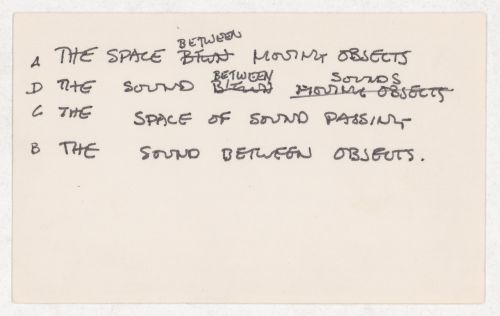 BETWEEN
A THE SPACE BTWN MOVING OBJECTS
BETWEEN SOUNDS
D THE SOUND MOVING OBJECTS
C THE SPACE OF SOUND PASSING
B THE SOUND BETWEEN OBJECTS.